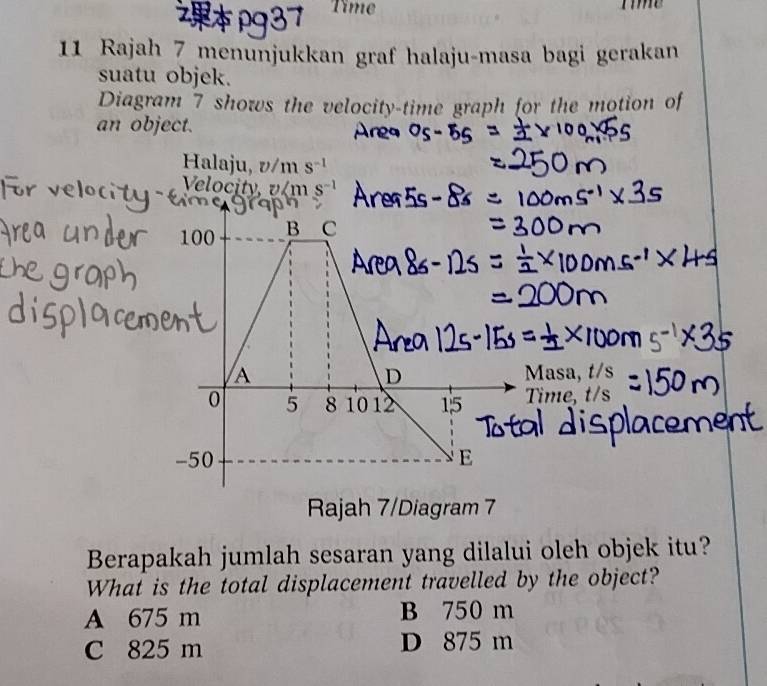 课本 pg37
Time
Time
11 Rajah 7 menunjukkan graf halaju-masa bagi gerakan
suatu objek.
Diagram 7 shows the velocity-time graph for the motion of
an object.
Area 0s - 5s = 1/2 × 100 × 5s
= 250m
Halaju, v/m s⁻¹
Velocity, v/m s⁻¹
For velocity-time graph:
Area under
the graph
displacement
Area 5s - 8s = 100ms⁻¹ × 3s
= 300m
Area 8s - 12s = 1/2 × 100ms⁻¹ × 4s
= 200m
Area 12s - 15s = 1/2 × 100m s⁻¹ × 3s
= 150m
Total displacement
100
B C
A
D
0 5 8 10 12 15
Masa, t/s
Time, t/s
-50
E
Rajah 7/Diagram 7
Berapakah jumlah sesaran yang dilalui oleh objek itu?
What is the total displacement travelled by the object?
A 675 m
B 750 m
C 825 m
D 875 m